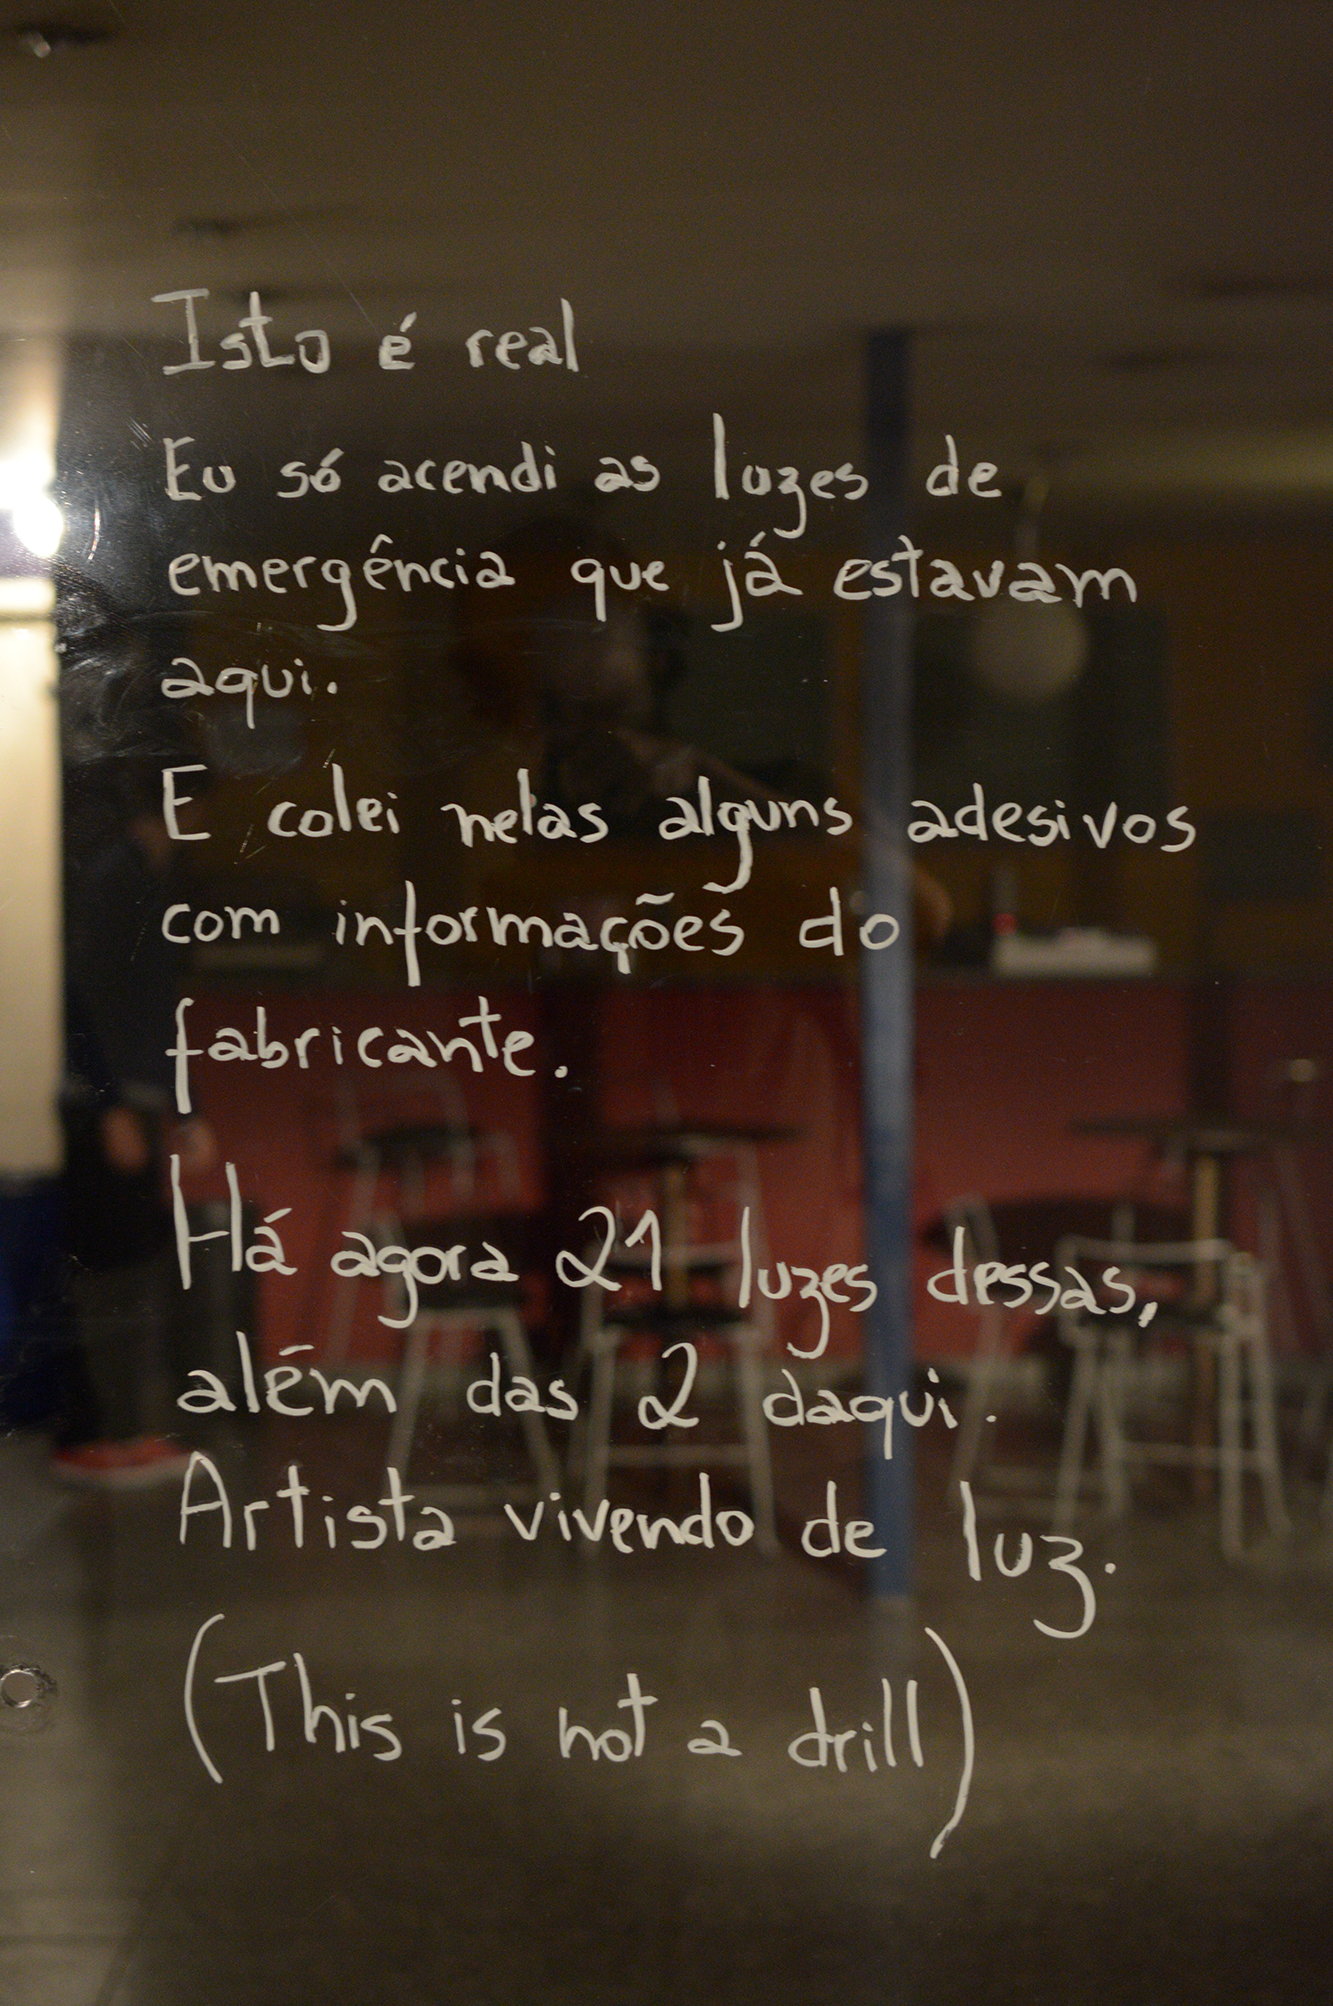 Isto é real
Eu só acendi as luzes de
emergência que já estavam
aqui.
E colei nelas alguns adesivos
com informações do
fabricante.
Há agora 21 luzes dessas,
além das 2 daqui.
Artista vivendo de luz.
(This is not a drill)